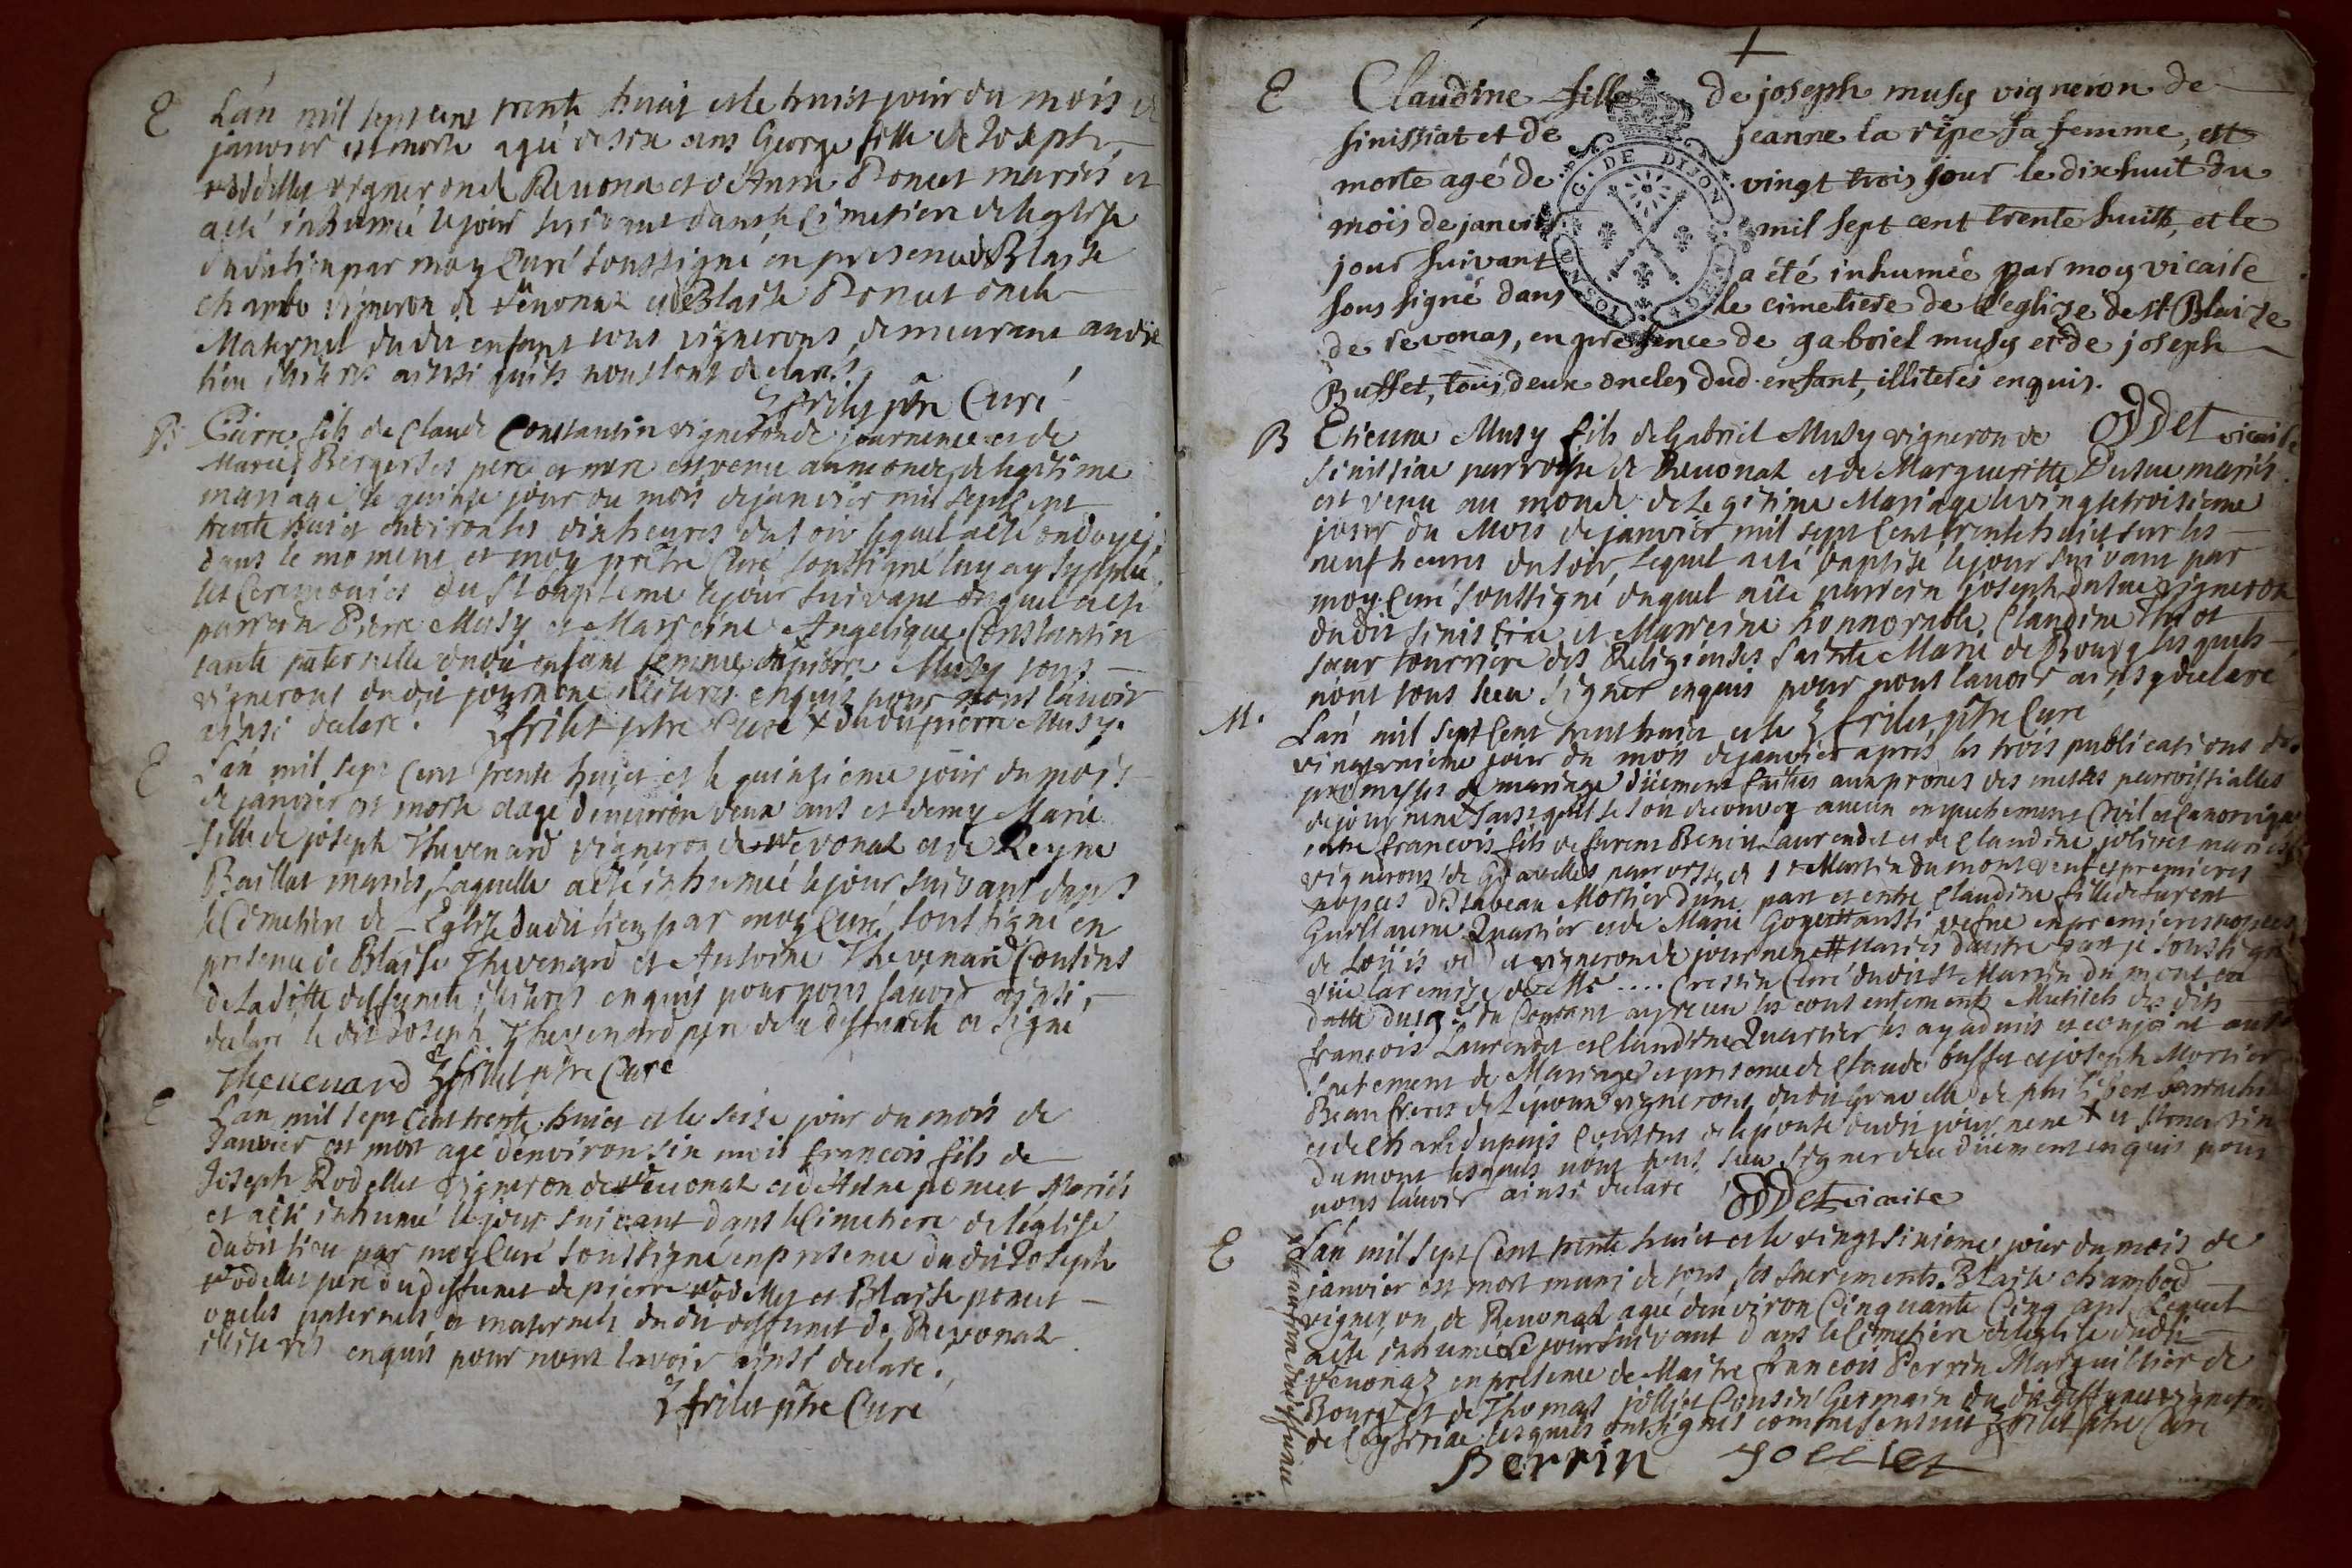 E
Lan mil sept cens trente huit et le huict jour du mois de
janvier est morte agée de six ans George fille de Joseph
Rodellet vigneron de Revona et d'Anne Poncet mariés et
a esté inhumée le jour suivant dans le Cimetiere de leglise
dudit lieu par moy Curé soussigné en presence de Blaise
chambo vigneron de Revonat et de Blaise Poncet oncle
Maternel du dit enfant tous vignerons demeurant audit
lieu illiterés ainsi quils nous lont declaré
frilet ptre Curé
B
Pierre fils de Claude Constantin vigneron de journence et de
Marie Berger ses pere et mere est venu au monde de legitime
mariage le quinze jour du mois de janvier mil sept cent
trente huict environ les dix heures du soir lequel a esté ondoyé
dans le moment et moy prêtre Curé soussigné luy ay supplée
les Ceremonies du St baptisme le jour suivant duquel a esté
parrein Pierre Musy et Marreine Angelique Constantin
tante paternelle du dit enfant femme + tous
vignerons dudit journene illiteres enquis pour nous lavoir
ainsi declaré. frilet ptre Curé + dudit pierre Musy.
E
Lan mil sept Cent trente huict et le quinzieme jour du mois
de janvier est morte aage denviron deux ans et demy Marie
fille de joseph Thevenard vigneron de Revonat et de Reyne
Baillat mariés, Laquelle a esté inhumée le jour suivant dans
le Cimetiere de L'Eglise dudit lieu par moy Curé soussigné en
presence de Blaise Thevenard et Antoine Thevenard Cousins
de la ditte deffuncte illiterés enquis pour nous savoir ainsi
declaré le dit Joseph Thevenard pere de la deffuncte a signé
Thevenard frilet ptre Curé
E
Lan mil sept Cent trente huict et le seize jour du mois de
Janvier est mort agé denviron six mois francois fils de
Joseph Rodellet vigneron de Revonat et d'Anne poncet Mariés
et a esté inhumé le jour suivant dans le Cimetiere de léglise
dudit lieu par moy Curé soussigné en presence du dit Joseph
Rodellet pere du deffunct de pierre Rodellet et Blaise poncet
oncles paternels et maternels du dit deffunct de Revonat
illiterés enquis pour nous lavoir ainsi declaré.
frilet ptre Curé
E
Claudine fille de joseph musy vigneron de
sinissiat et de jeanne la ripe sa femme, est
morte agé de vingt trois jour le dixhuit du
mois de janvier mil sept cent trente huitt, et le
jour suivant a été inhumée par moy vicaire
sous signé dans le cimetiere de l'eglize de st Blaize
de revonas, en presence de gabriel musy et de joseph
Buffet, tous deux oncles dud. enfant, illiterés enquis.
G. DE DIJON
oddet vicaire
B
Etienne Musy fils de Gabriel Musy vigneron de
Sinissiac parroisse de Revonat et de Margueritte Dutue mariés
est venu au monde de Legitime Mariage le vingt troisieme
jour du Mois de janvier mil sept Cent trente huict sur les
neuf heures du soir, lequel a esté baptisé le jour suivant par
moy Curé soussigné duquel a esté parrein joseph dutue vigneron
dudit sinissiac et Marreine honnorable Claudine
sœur tourriere des Religieuses Sainte Marie de Bourg lesquels
n'ont tous sceu signer enquis pour nous lavoir ainsy declaré
frilet ptre Curé
M.
Lan mil sept Cent trente huict et le
vingt jour du mois de janvier apres les trois publications des
promesses de mariage düement faittes aux prones des messes parroissialles
de journene + sans quil se soit decouvert aucun empechement Civil et Canonique
entre francois fils de furent Benoit Laurendet et de Claudine jolivet mariés
vignerons de Gravelles parroisse de St Martin du mont veuf es premieres
nopces disabeau Mortier d'une part et entre Claudine fille de furent
Guillaume Quartier et de Marie aussi vefve en premieres nopces
de Loüis vigneron de journene # Mariés dautre part je soussigné
vüe la remise de Me .... Crestin Curé dudit St Martin du mont en
datte du 19e du Courant ay receu les consentements Mutuels des dits
francois Laurendet et Claudine Quartier les ay admis et conjoint au St
Sacrement de Mariage en presence de Claude buffet et joseph Mortier
Beaufreres de Lepoux vignerons dudit gravelle de
et de Charle dupuis Cousins de lepouse dudit journene + et St martin
du mont lesquels n'ont tous sceu signer de ce düement enquis pour
nous lavoir ainsi declaré oddet vicaire
E
Lan mil sept Cent trente huict et le vingt sixieme jour du mois de
janvier est mort muni de tous les sacrements Blaise chambod
vigneron de Revonat agé denviron Cinquante Cinq ans Lequel
a esté inhumé Le jour suivant dans le Cimetiere de leglise dudit
Revonaz en presence de Maitre francois Perrin Marguillier de
Bourg et de Thomas jolliet Cousin Germain du dit deffunct vigneron
de Ceyseriac lesquels ont signés comme sensuit frilet ptre Curé
Perrin Jolliet